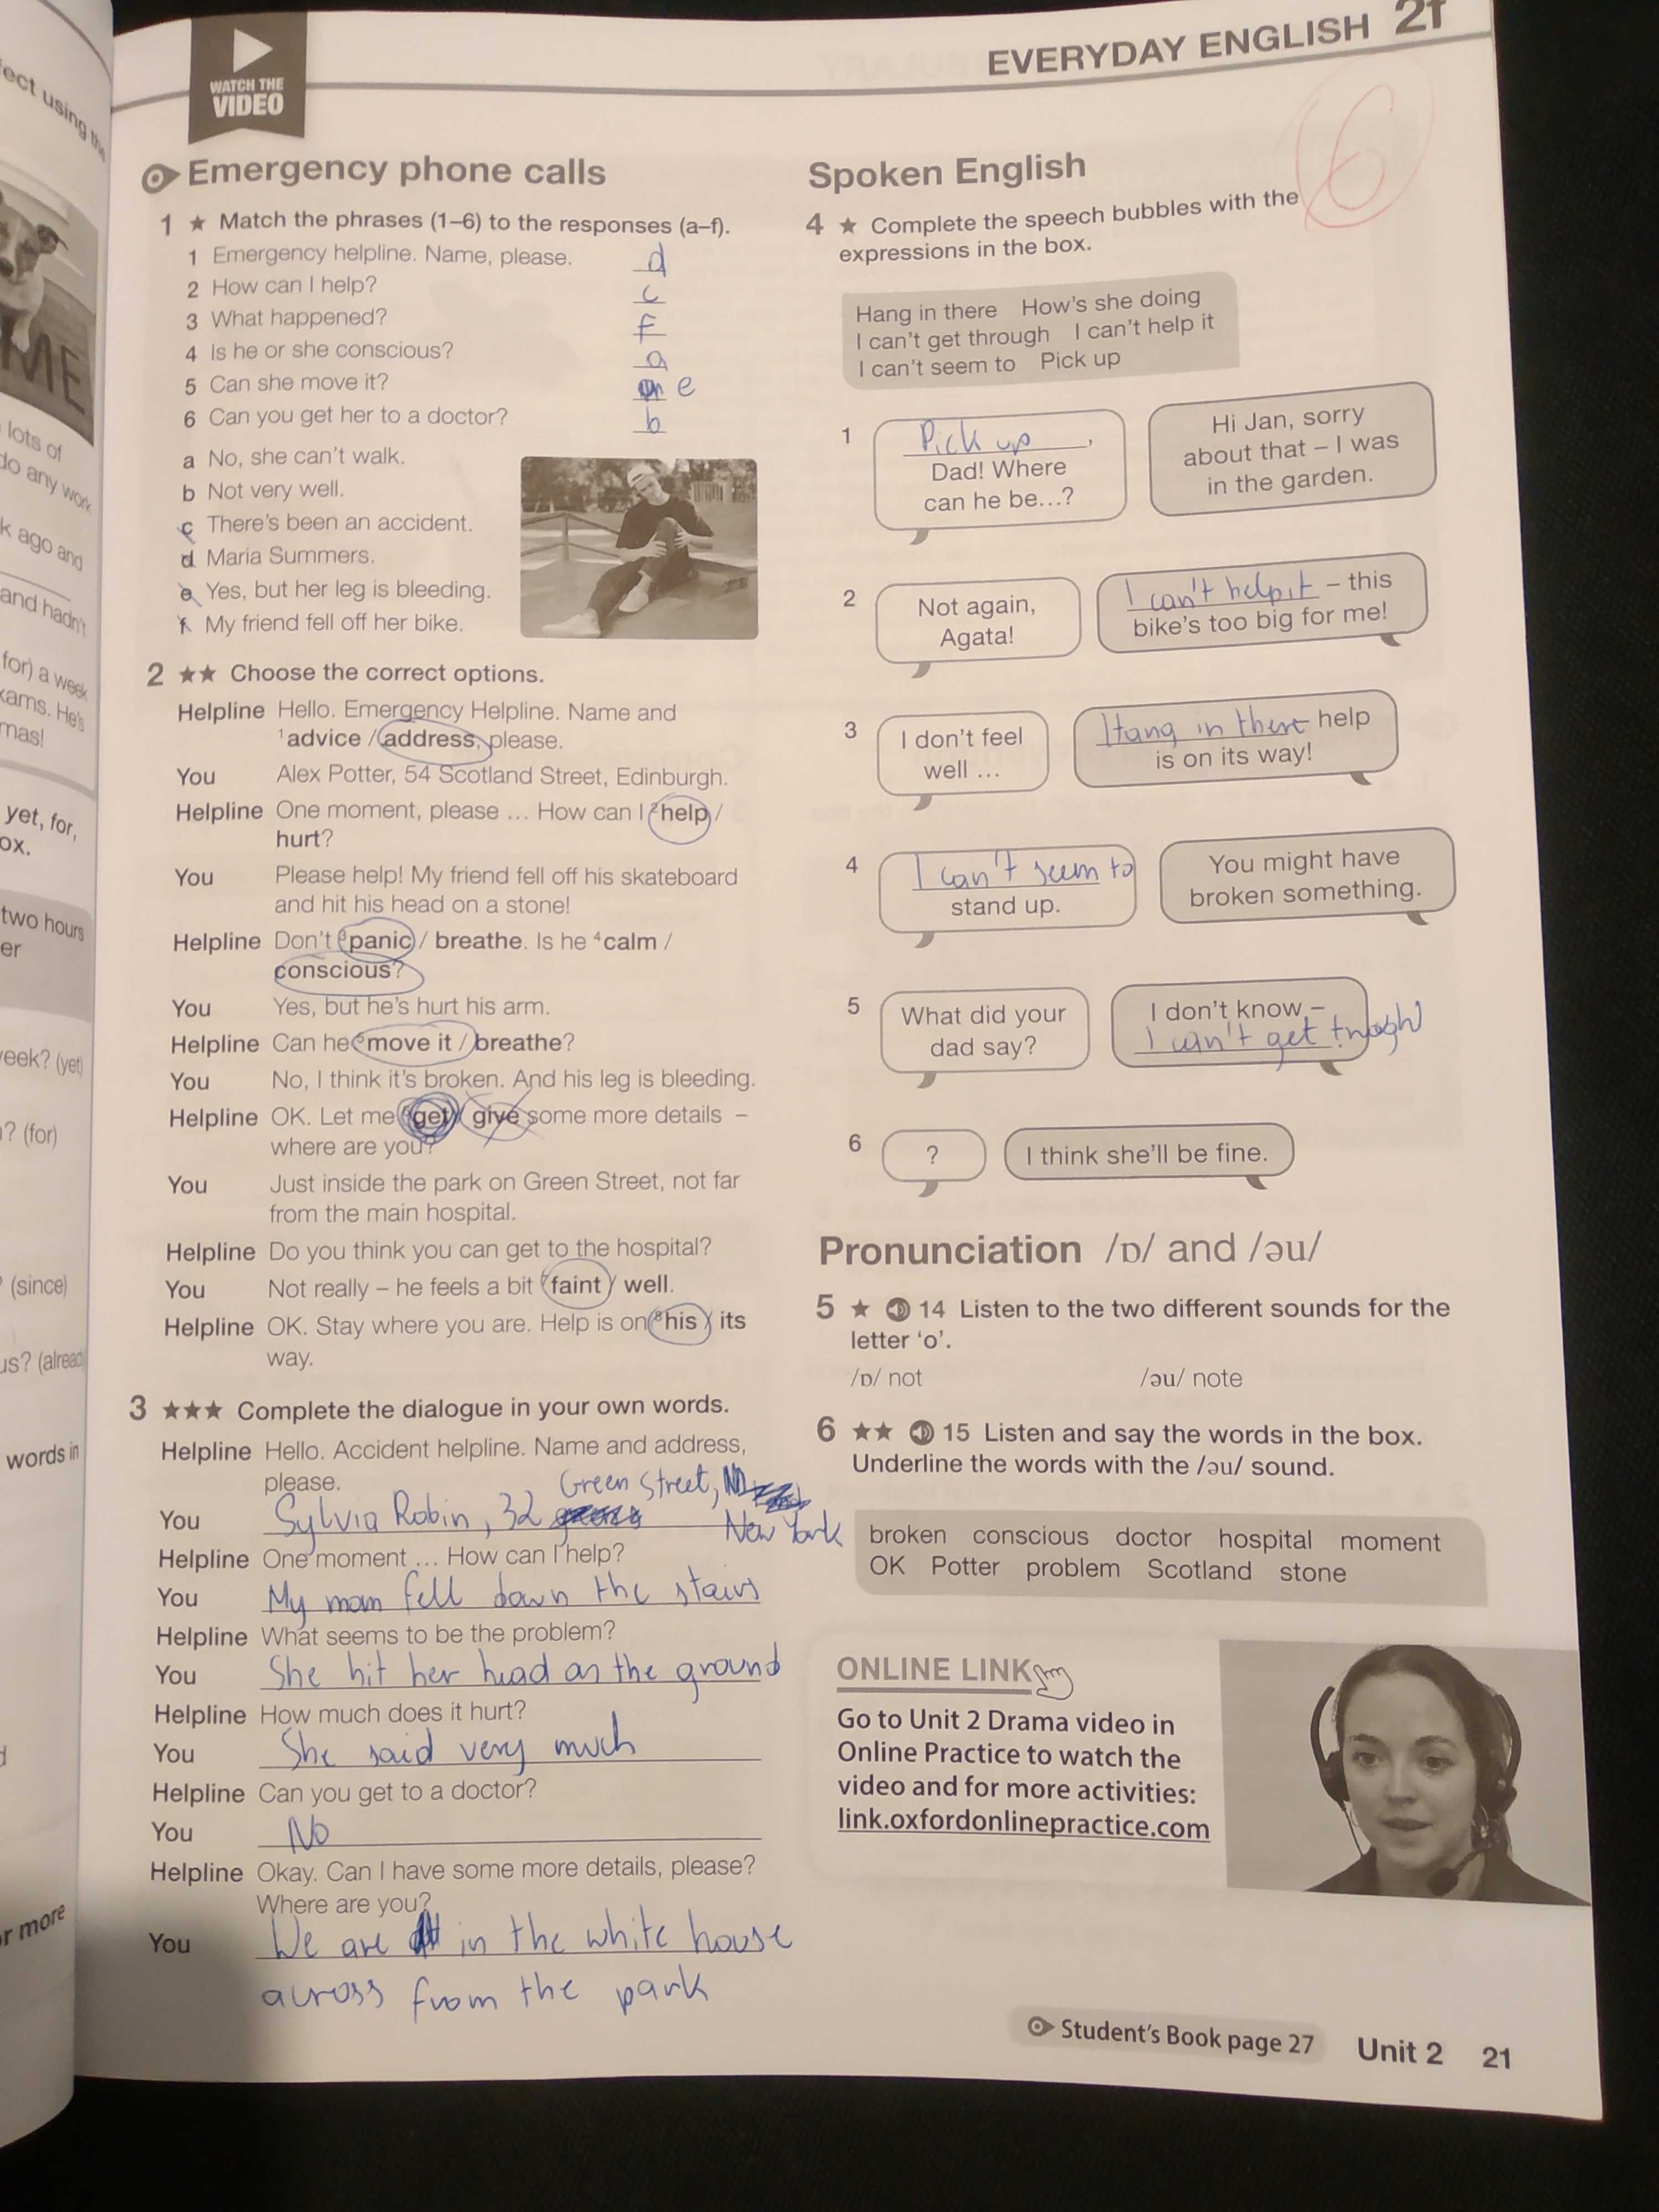 ect using the
ME
lots of
do any work
k ago and
and hadn't
for) a week
xams. He's
mas!
yet, for,
ox.
two hours
er
eek? (yet)
? (for)
? (since)
us? (alread
words in
or more
WATCH THE
VIDEO
EVERYDAY ENGLISH 2f
6
Emergency phone calls
1 ★ Match the phrases (1–6) to the responses (a–f).
1 Emergency helpline. Name, please. d
2 How can I help? c
3 What happened? f
4 Is he or she conscious? a
5 Can she move it? e
6 Can you get her to a doctor? b
a No, she can't walk.
b Not very well.
c There's been an accident.
d Maria Summers.
e Yes, but her leg is bleeding.
f My friend fell off her bike.
2 ★★ Choose the correct options.
Helpline Hello. Emergency Helpline. Name and
1 advice / address, please.
You Alex Potter, 54 Scotland Street, Edinburgh.
Helpline One moment, please … How can I 2 help /
hurt?
You Please help! My friend fell off his skateboard
and hit his head on a stone!
Helpline Don't 3 panic / breathe. Is he 4 calm /
conscious?
You Yes, but he's hurt his arm.
Helpline Can he 5 move it / breathe?
You No, I think it's broken. And his leg is bleeding.
Helpline OK. Let me 6 get / give some more details –
where are you?
You Just inside the park on Green Street, not far
from the main hospital.
Helpline Do you think you can get to the hospital?
You Not really – he feels a bit 7 faint / well.
Helpline OK. Stay where you are. Help is on 8 his / its
way.
3 ★★★ Complete the dialogue in your own words.
Helpline Hello. Accident helpline. Name and address,
please.
You Sylvia Robin, 32 Green Street,
New York
Helpline One moment … How can I help?
You My mom fell down the stairs
Helpline What seems to be the problem?
You She hit her head on the ground
Helpline How much does it hurt?
You She said very much
Helpline Can you get to a doctor?
You No
Helpline Okay. Can I have some more details, please?
Where are you?
You We are in the white house
across from the park
Spoken English
4 ★ Complete the speech bubbles with the
expressions in the box.
Hang in there How's she doing
I can't get through I can't help it
I can't seem to Pick up
1 Pick up,
Dad! Where
can he be…?
Hi Jan, sorry
about that – I was
in the garden.
2 Not again,
Agata!
I can't help it – this
bike's too big for me!
3 I don't feel
well …
Hang in there help
is on its way!
4 I can't seem to
stand up.
You might have
broken something.
5 What did your
dad say?
I don't know –
I can't get
6 ?
I think she'll be fine.
Pronunciation /ɒ/ and /əu/
5 ★ 14 Listen to the two different sounds for the
letter 'o'.
/ɒ/ not /əu/ note
6 ★★ 15 Listen and say the words in the box.
Underline the words with the /əu/ sound.
broken conscious doctor hospital moment
OK Potter problem Scotland stone
ONLINE LINK
Go to Unit 2 Drama video in
Online Practice to watch the
video and for more activities:
link.oxfordonlinepractice.com
Student's Book page 27 Unit 2 21